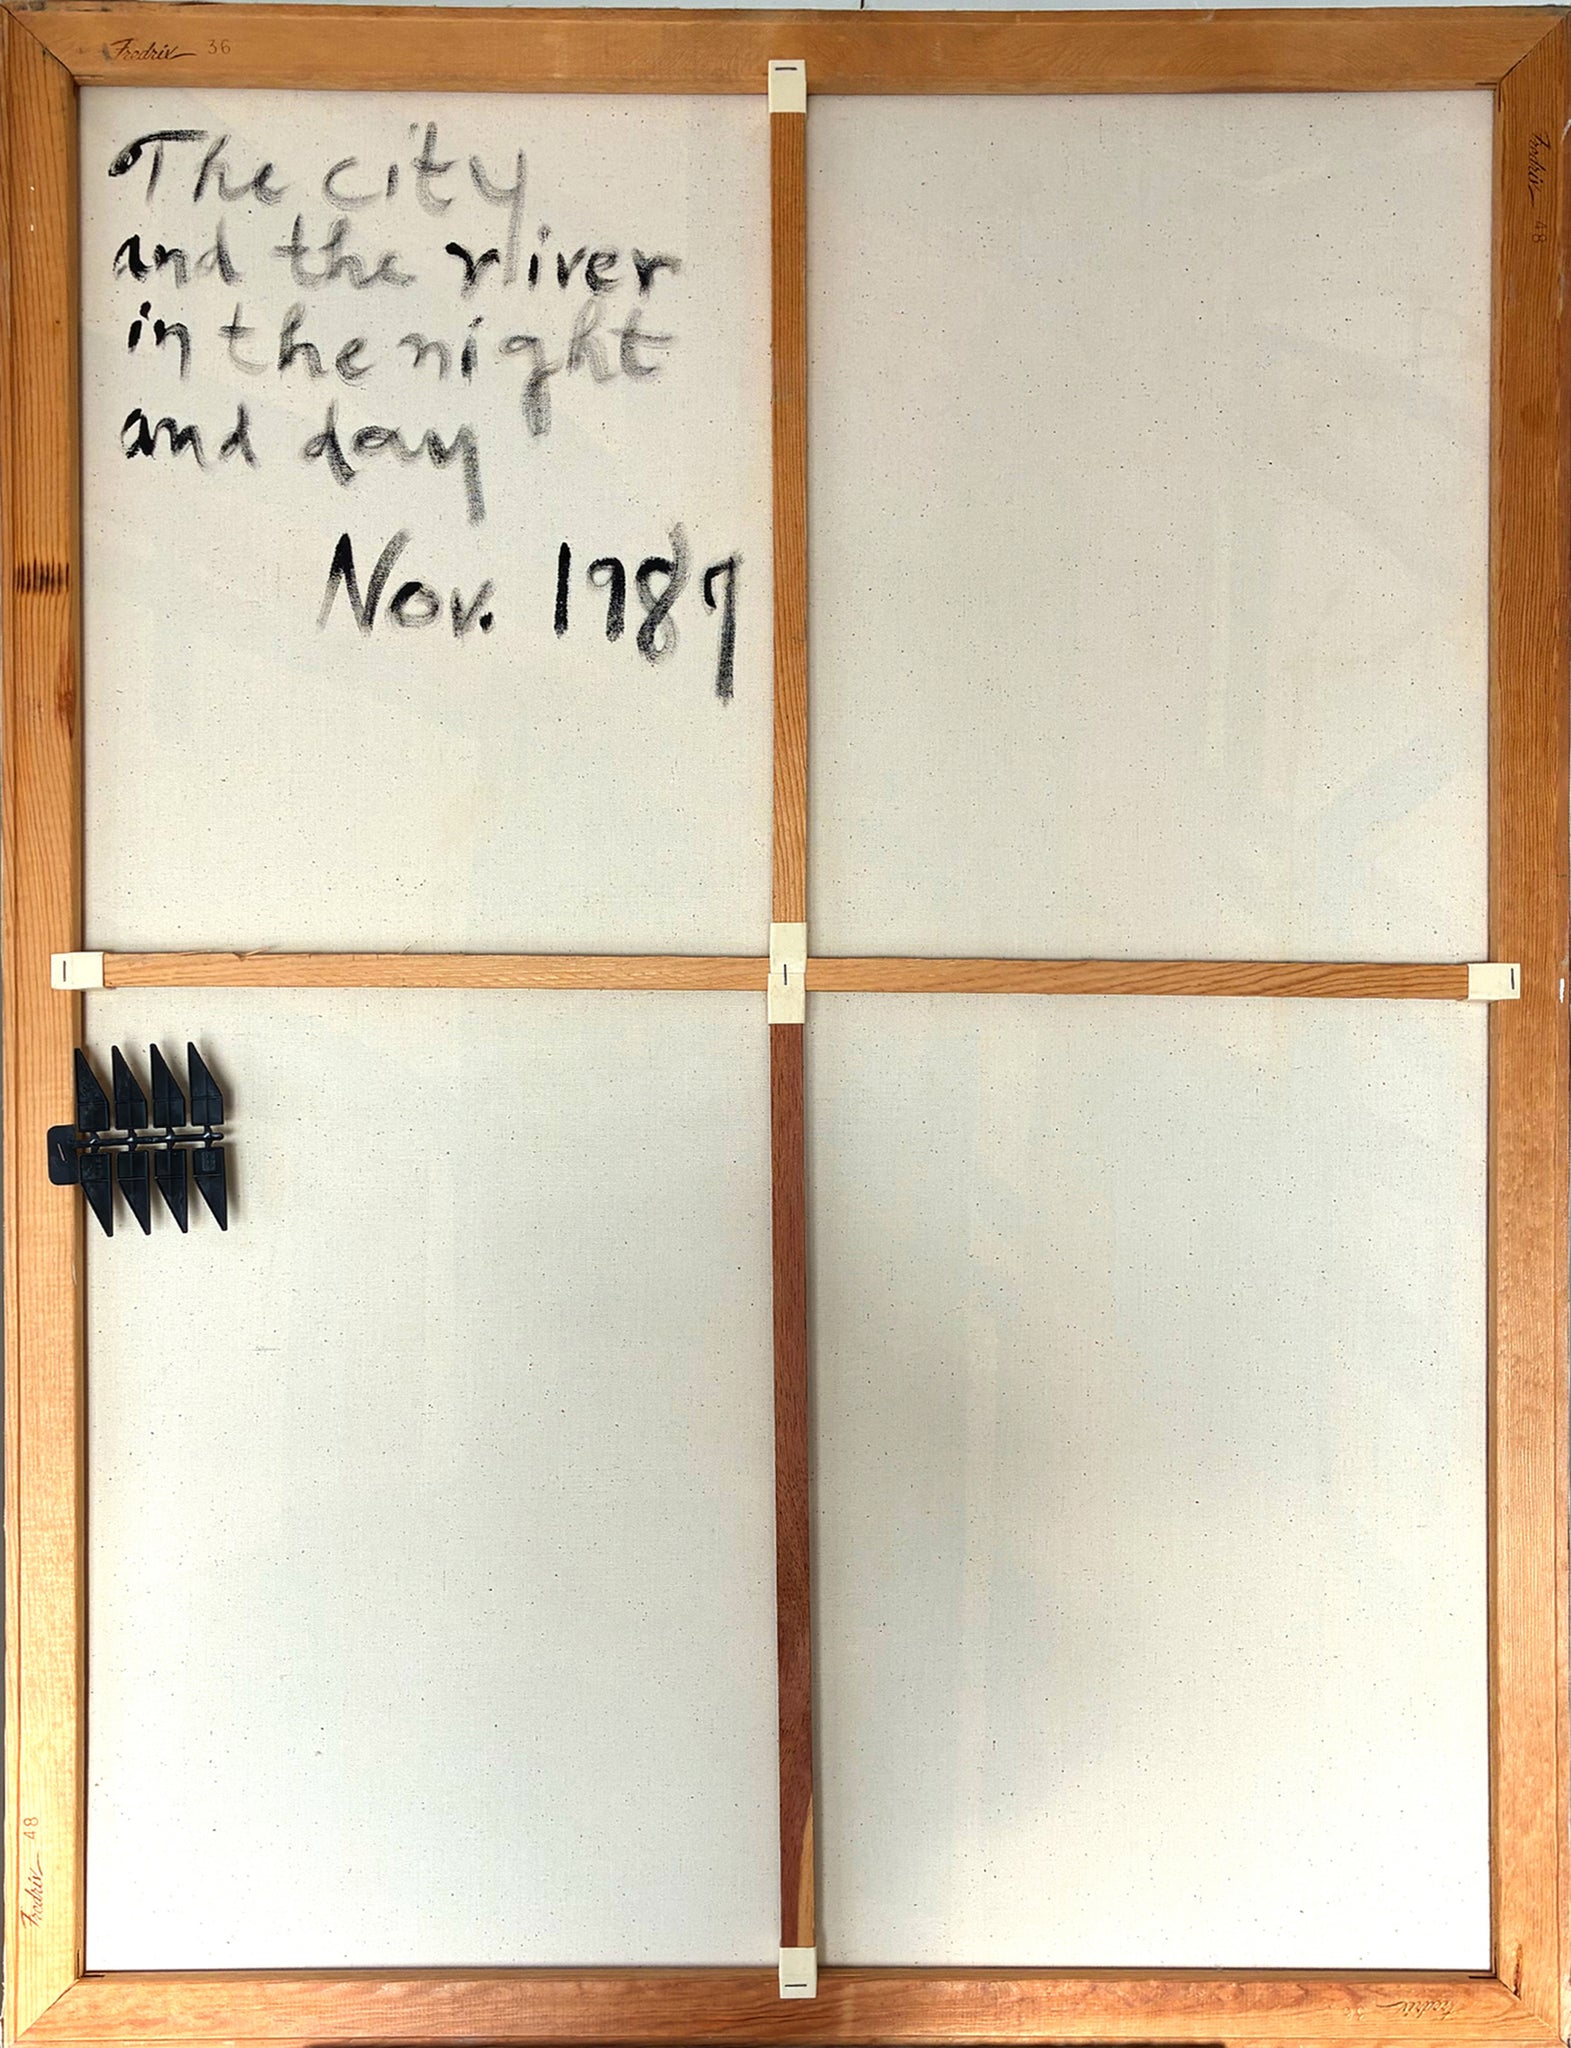 Fredrix 36
Fredrix 48
The city
and the river
in the night
and day
Nov. 1987
Fredrix 48
Fredrix 36